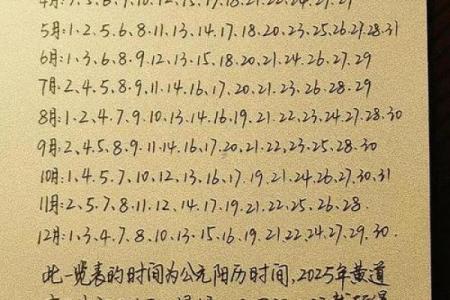 5月:1、2、5、6、8、11、13、14、17、18、20、23、26、27、28、31
6月:1、3、6、8、9、12、13、15、18、20、21、24、26、27、29
7月:2、4、5、8、9、11、14、16、17、20、21、23、26、28、29
8月:1、2、4、7、9、10、13、14、16、19、21、22、23、24、27、28、30
9月:2、4、5、8、9、11、14、16、17、20、21、22、23、25、28、30
10月:1、4、5、7、10、12、13、16、17、19、21、24、26、27、30、31
11月:2、5、7、8、11、12、14、17、19、20、21、25、26、28
12月:1、3、4、7、8、10、13、15、16、19、21、22、24、27、29、30
此一览表的时间为公元阳历时间,2025年黄道